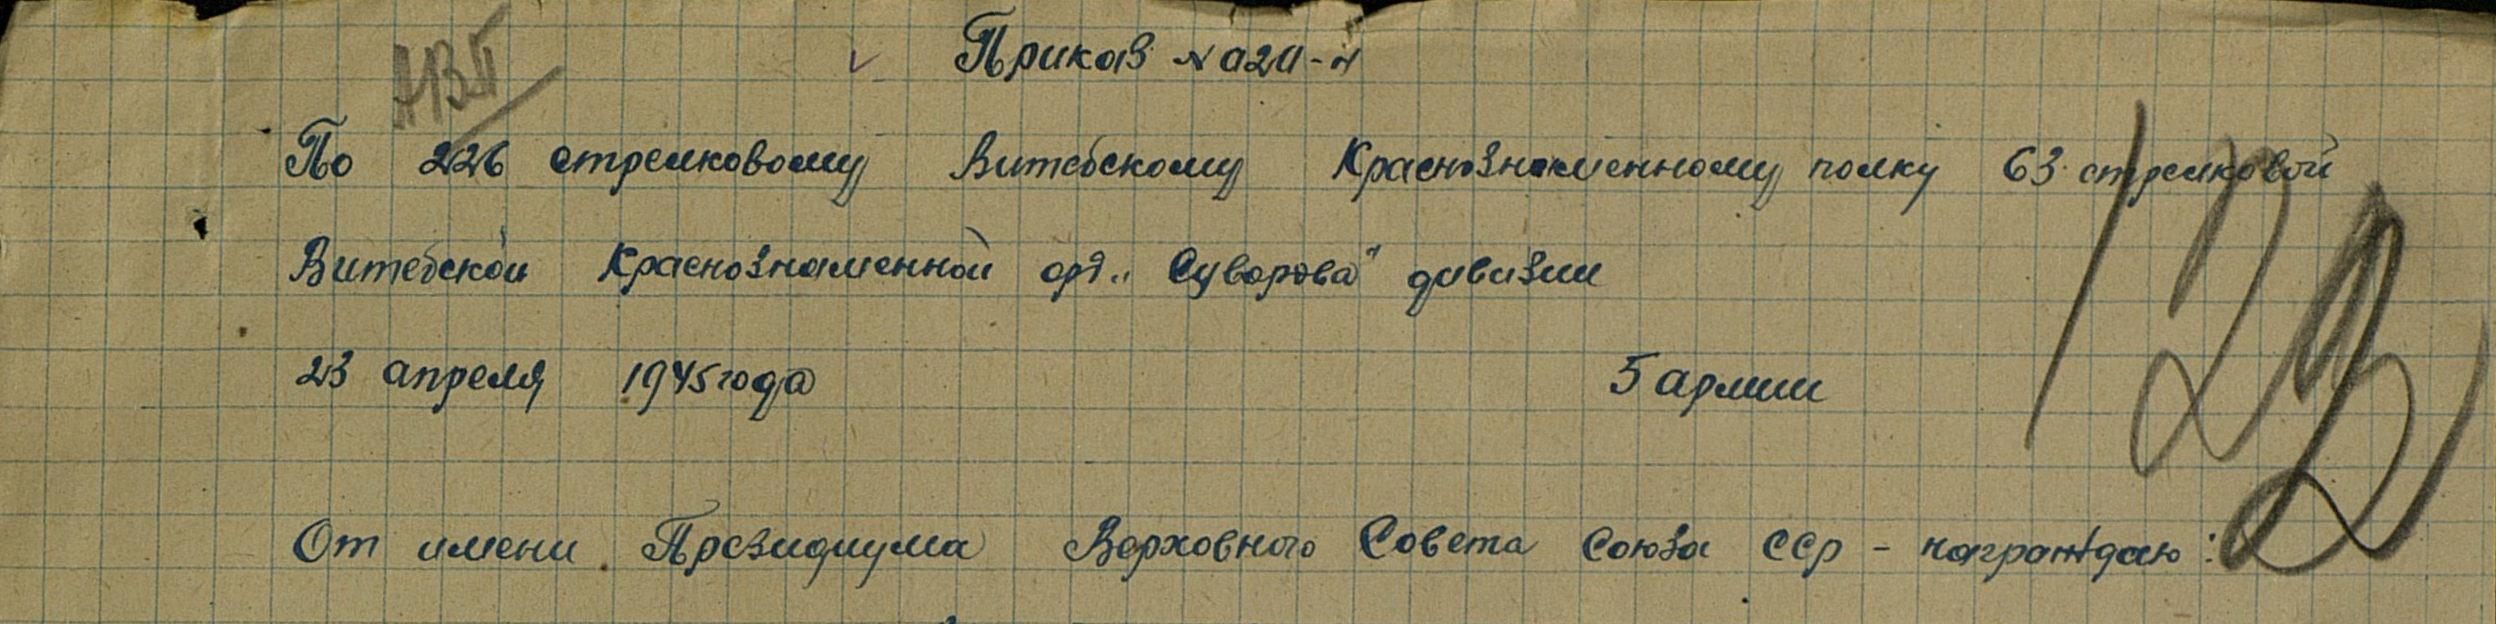 Приказ № 020-н
По 226 стрелковому Витебскому Краснознаменному полку 63 стрелковой
Витебской Краснознаменной орд. „Суворова" дивизии
23 апреля 1945 года 5 армии
От имени Президиума Верховного Совета Союза ССР - награждаю: